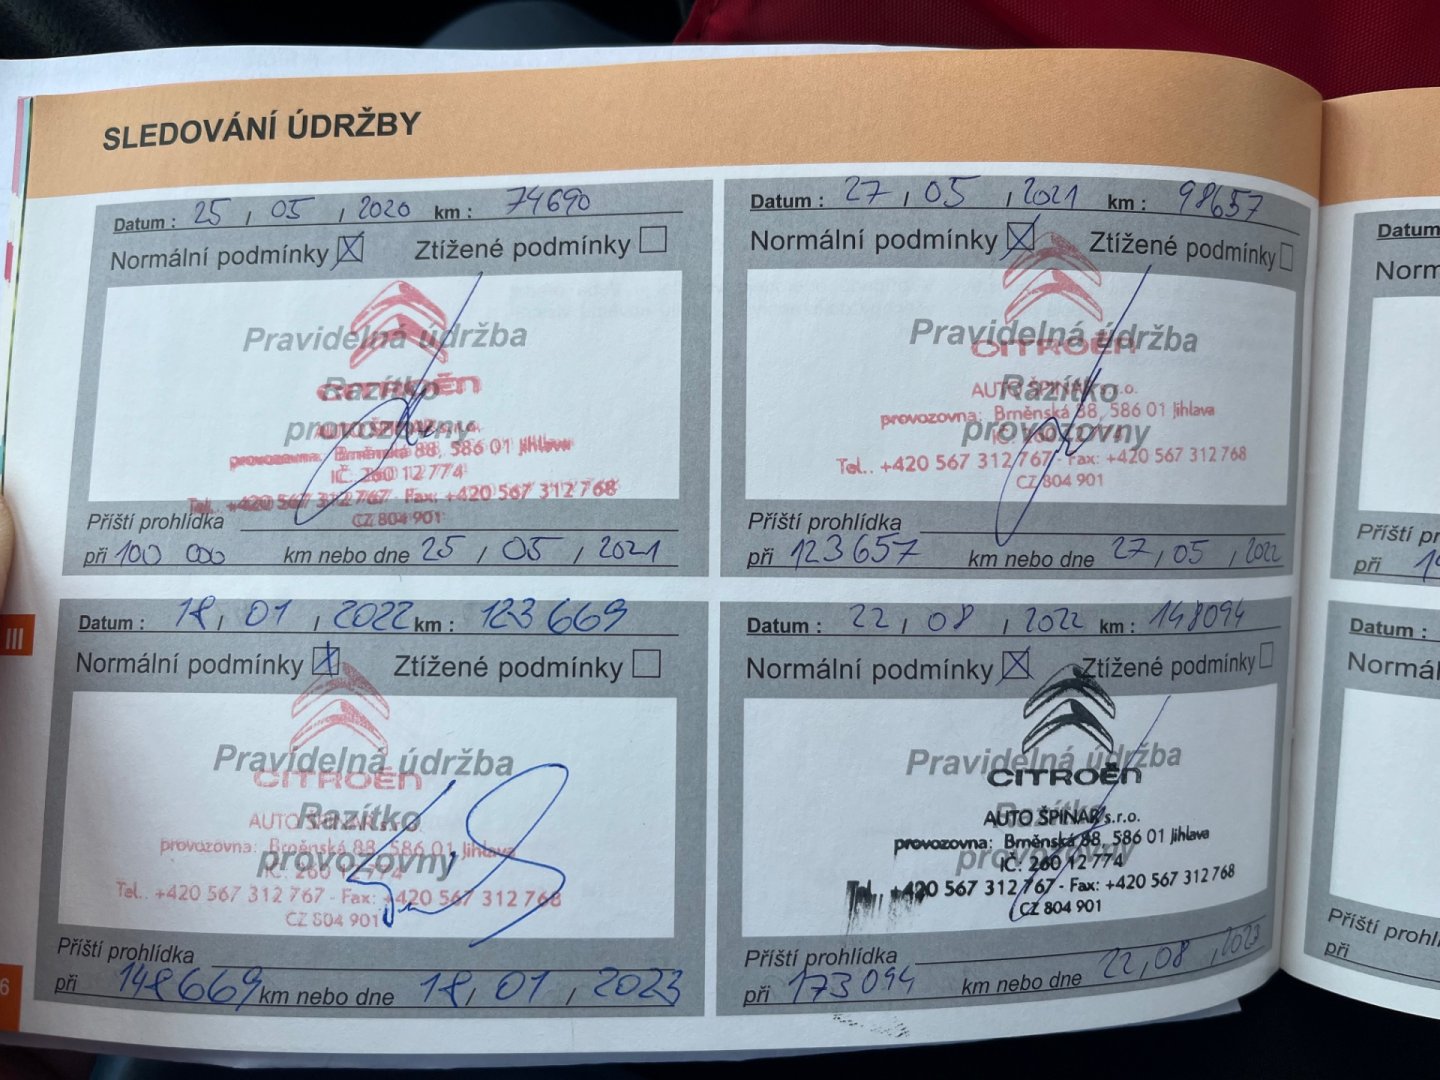 SLEDOVÁNÍ ÚDRŽBY
Datum : 25 / 05 / 2020 km : 74690
Normální podmínky Ztížené podmínky
Pravidelná údržba
Razítko
provozovny
CITROËN
AUTO ŠPINAR s.r.o.
provozovna: Brněnská 88, 586 01 Jihlava
IČ: 260 12 774
Tel.. +420 567 312 767 - Fax: +420 567 312 768
CZ 804 901
Příští prohlídka
při 100 000 km nebo dne 25 / 05 / 2021
Datum : 27 / 05 / 2021 km : 98657
Normální podmínky Ztížené podmínky
Pravidelná údržba
CITROËN
Razítko
AUTO ŠPINAR s.r.o.
provozovna: Brněnská 88, 586 01 Jihlava
provozovny
IČ: 260 12 774
Tel.. +420 567 312 767 - Fax: +420 567 312 768
CZ 804 901
Příští prohlídka
při 123657 km nebo dne 27 / 05 / 2022
Datum : 18 / 01 / 2022 km : 123 669
Normální podmínky Ztížené podmínky
Pravidelná údržba
CITROËN
Razítko
AUTO ŠPINAR s.r.o.
provozovna: Brněnská 88, 586 01 Jihlava
provozovny
IČ: 260 12 774
Tel.. +420 567 312 767 - Fax: +420 567 312 768
CZ 804 901
Příští prohlídka
při 148669 km nebo dne 18 / 01 / 2023
Datum : 22 / 08 / 2022 km : 148094
Normální podmínky Ztížené podmínky
Pravidelná údržba
CITROËN
Razítko
AUTO ŠPINAR s.r.o.
provozovna: Brněnská 88, 586 01 Jihlava
provozovny
IČ: 260 12 774
Tel.. +420 567 312 767 - Fax: +420 567 312 768
CZ 804 901
Příští prohlídka
při 173094 km nebo dne 22 / 08 / 2023
III
6
Datum
Norm
Příští pr
při
Datum :
Normál
Příští prohl
při